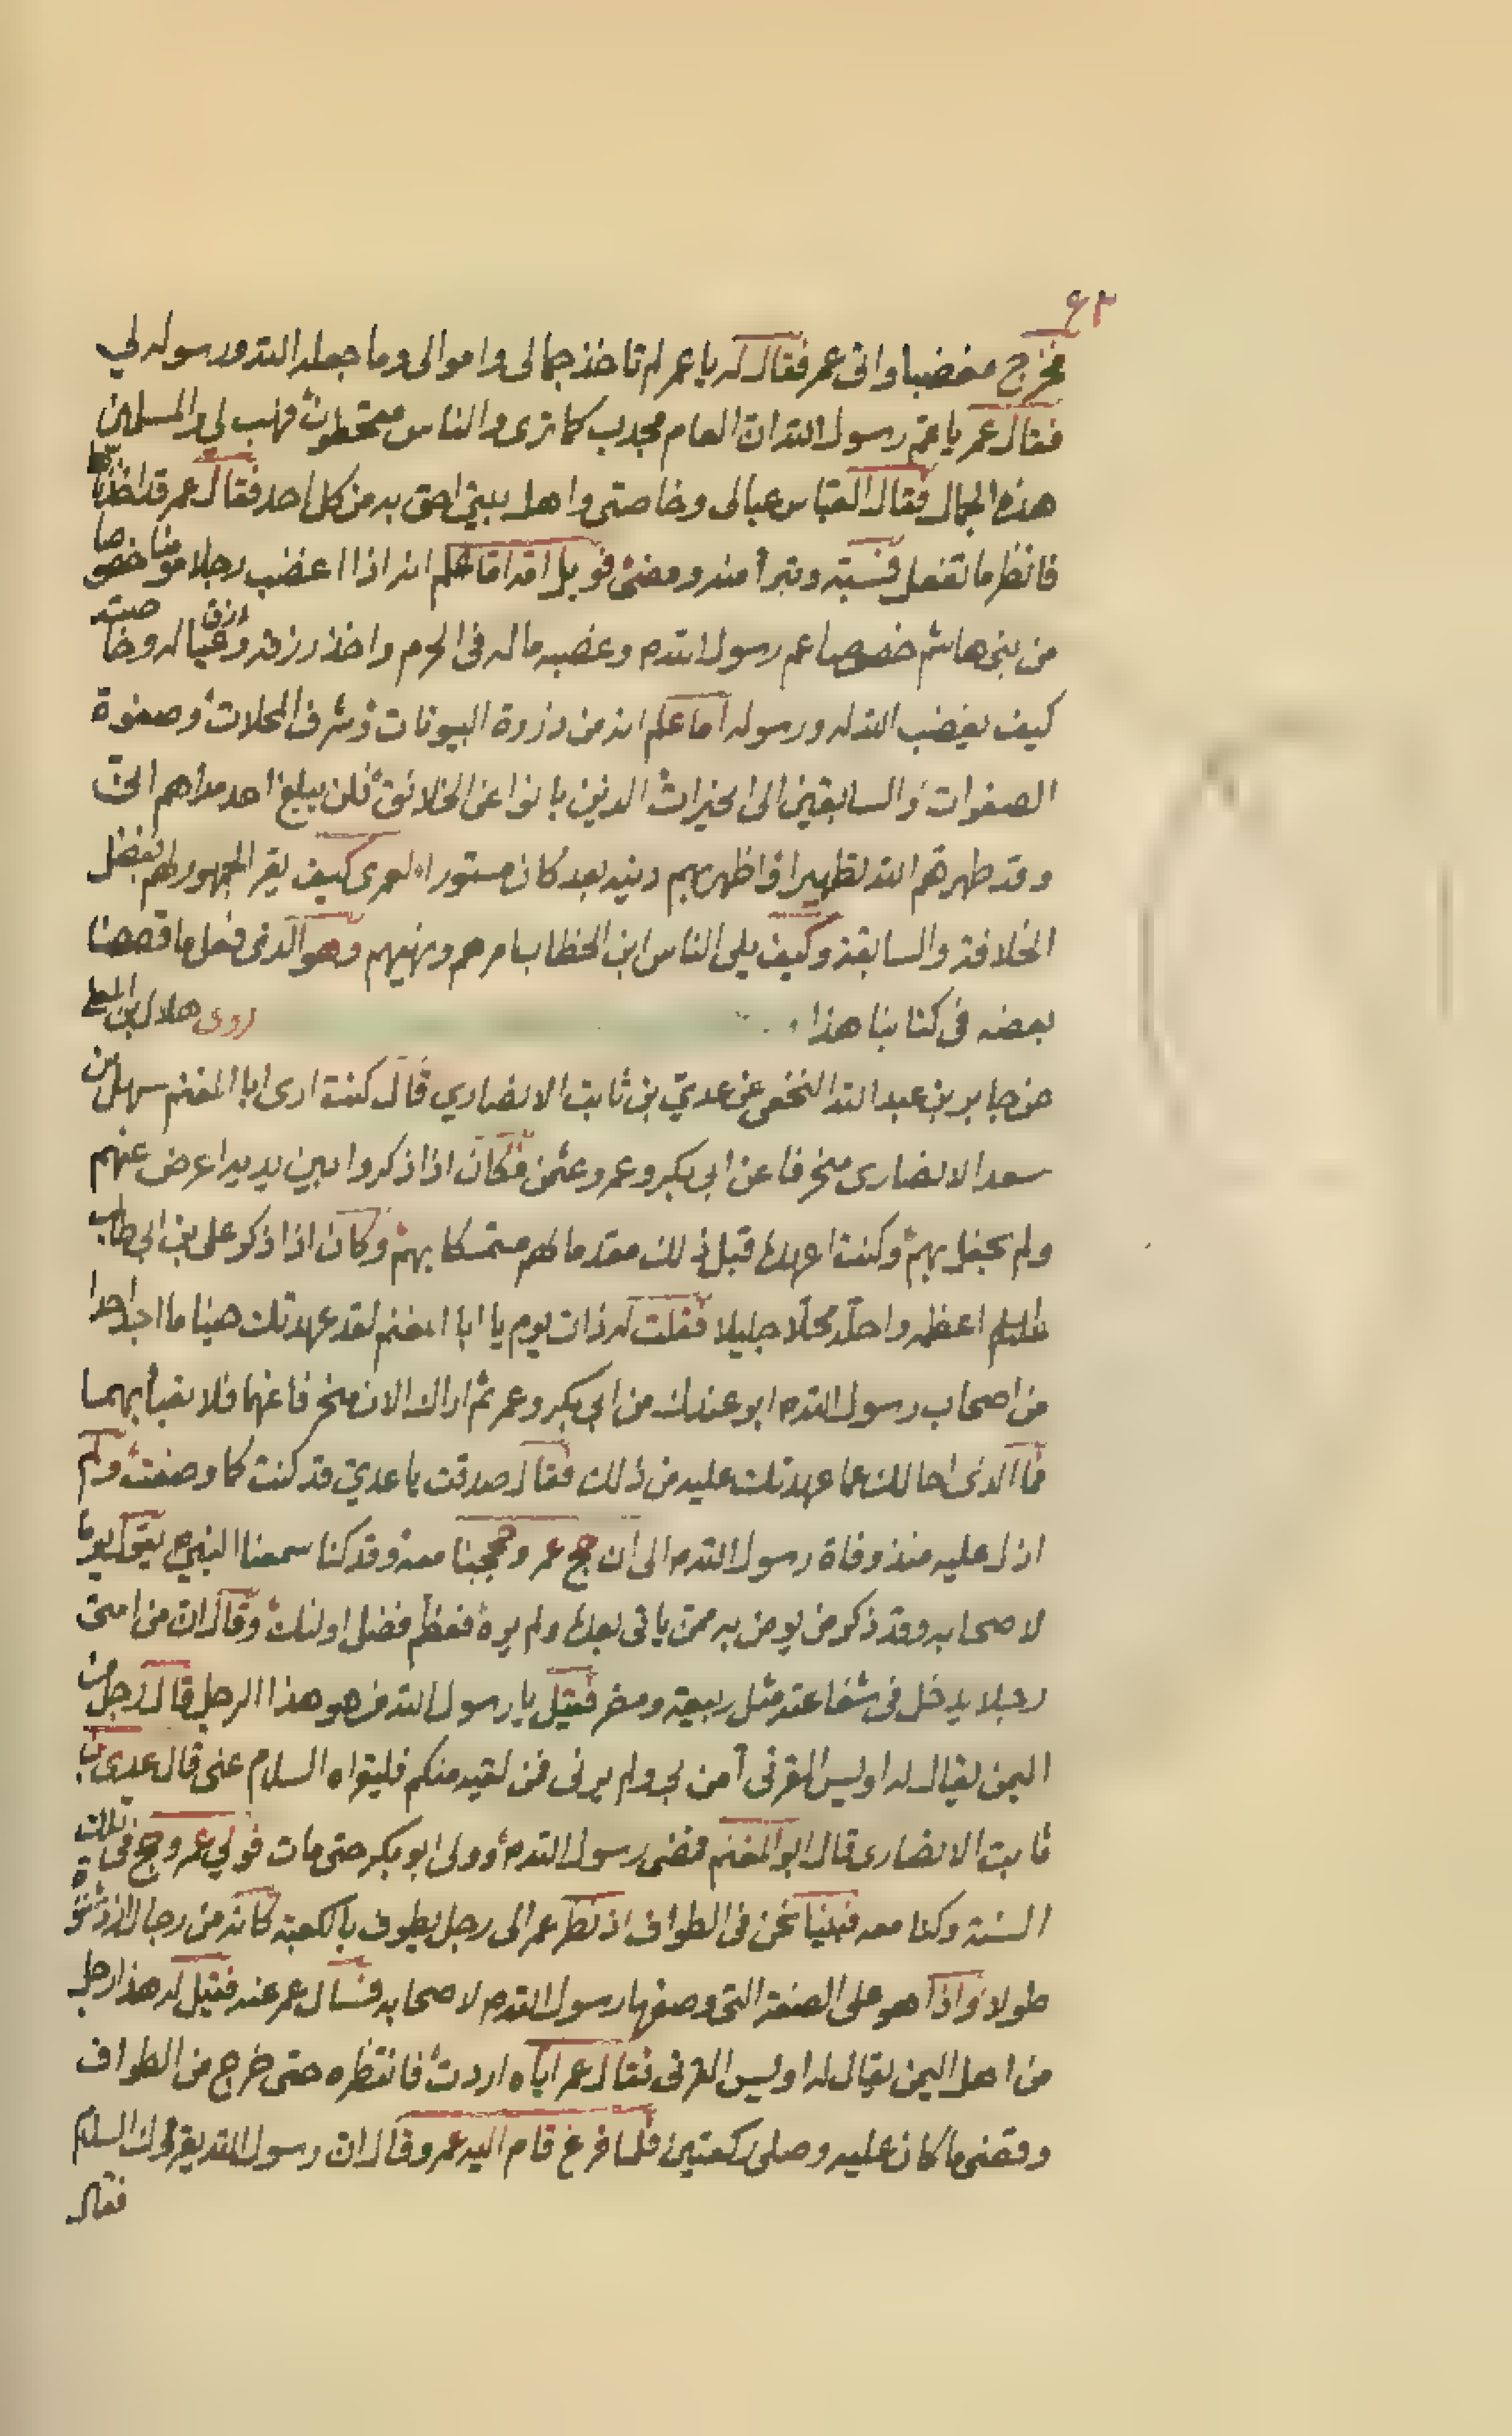 ٤٣
فخرج مغضبا واتى عمر فقال له يا عمر لم تاخذ جمالى واموالى وما جعله الله ورسوله لي
فقال عمر يا عم رسول الله ان العام مجدب كما ترى والناس مقحطون فهب لي والمسلمين
هذه الجمال فقال العباس عيالى وخاصتى واهل بيتى احق به من كل احد فقال عمر قد اخذتها
فانظر ما تفعل فسبّه وتبرأ منه ومضى فويل امه اما علم انه اذا اغضب رجلا مومنا خصوصا
من بنى هاشم خصوصا عم رسول الله م وغضبه ماله فى الحرم واخذ رزقه ورزق عياله وخاصته
كيف يغضب الله له ورسوله اما علم انه من دزروة البيوتات وشرف المحلات وصفوة
الصفوات والسابقين الى الخيرات الذين بانوا عن الخلائق فلن يبلغ احد مداهم التى
وقد طهرهم الله تطهيرا واظهر بهم دينه بعد كان مستورا لعمرى كيف يقر الجمهور لهم بفضل
الخلافة والسابقة وكيف يلى الناس ابن الخطاب يامرهم وينهيهم وهو الذى فعل ما قصصنا
بعضه فى كتابنا هذا روى هلال بن
عن جابر بن عبد الله النخعى عن عديّ بن ثابت الانصاري قال كنت ارى ابا المغنم سهل بن
سعد الانصارى منحرفا عن ابى بكر وعمر وعثمن فكان اذا ذكروا بين يديه اعرض عنهم
ولم يحفل بهم وكنت اعهده قبل ذلك مقدما لهم متمسكا بهم وكان اذا ذكر على بن ابى طالب
عليه السلم اعظمه واحله محلّا جليلا فقلت له ذات يوم يا ابا المغنم لقد عهدتك حينا ما اجد احدا
من اصحاب رسول الله م ابو عندك من ابى بكر وعمر ثم اراك الان منحرفا عنهما فلا تعبأ بهما
فما الذى احالك عما عهدتك عليه من ذلك فقال صدقت يا عديّ قد كنت كما وصفت ولم
ازل عليه منذ وفاة رسول الله م الى ان حج عمر وحججنا معه وقد كنا سمعنا النبي م يقول يوما
لاصحابه وقد ذكر من يومن به ممن ياتى بعده ولم يره فعظم فضل اولئك وقال ان من امتى
رجلا يدخل فى شفاعته مثل ربيعة ومضر فقيل يا رسول الله من هو هذا الرجل قال رجل من
اليمن يقال له اويس القرنى آمن بى ولم يرنى فمن لقيه منكم فليقراه السلام عنى قال عدى بن
ثابت الانصارى قال ابو المغنم فمضى رسول الله م وولى ابو بكر حتى مات فولي عمر وحج فى تلك
السنة وكنا معه فبينا نحن فى الطواف اذ نظر عمر الى رجل يطوف بالكعبة كانه من رجال ازد شنوة
طولا واذا هو على الصفة التى وصفها رسول الله م لاصحابه فسال عمر عنه فقيل له هذا رجل
من اهل اليمن يقال له اويس القرنى فقال عمر اياه اردت فانتظره حتى خرج من الطواف
وقضى ما كان عليه وصلى ركعتين فلما فرغ قام اليه عمر وقال ان رسول الله يقرئك السلم
فقال